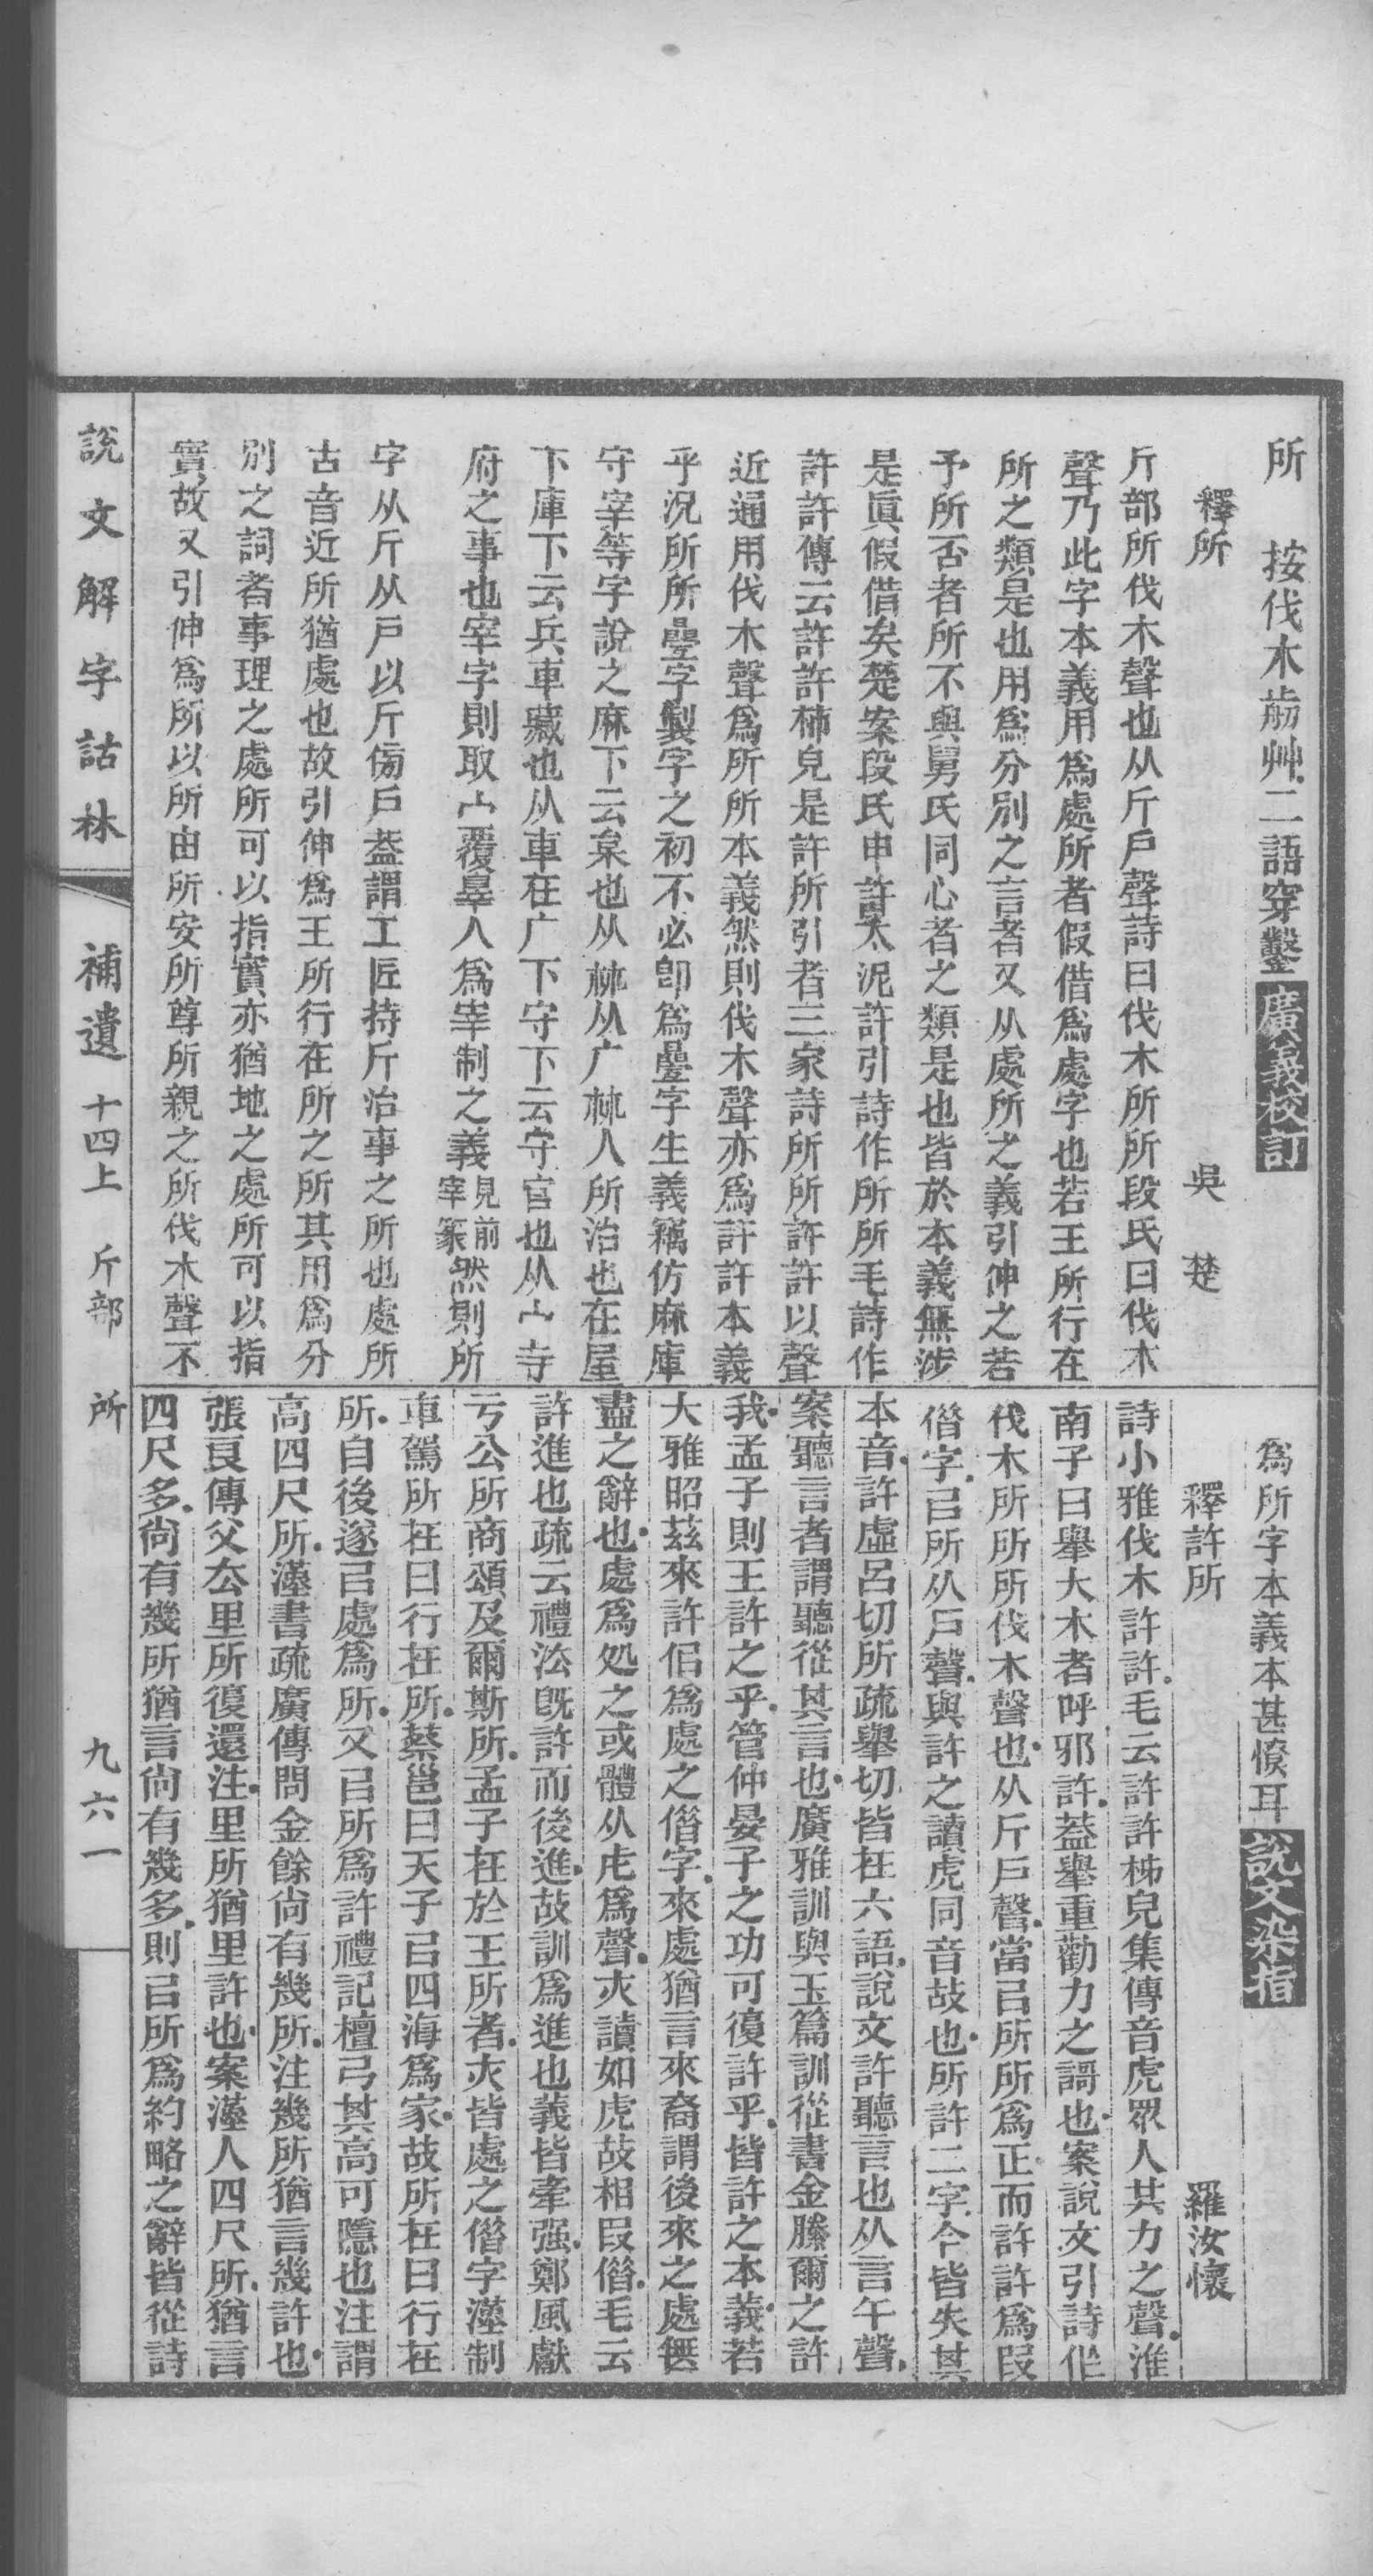 所　按伐木茢艸二語穿鑿廣義校訂
釋所　吳楚
斤部所伐木聲也从斤戶聲詩曰伐木所所段氏曰伐木
聲乃此字本義用爲處所者假借爲處字也若王所行在
所之類是也用爲分別之言者又从處所之義引伸之若
予所否者所不與舅氏同心者之類是也皆於本義無涉
是眞假借矣楚案段氏申許太泥許引詩作所所毛詩作
許許傳云許許柹皃是許所引者三家詩所所許許以聲
近通用伐木聲爲所所本義然則伐木聲亦爲許許本義
乎況所所疊字製字之初不必卽爲疊字生義竊仿麻庫
守宰等字說之麻下云枲也从𣏟从广𣏟人所治也在屋
下庫下云兵車藏也从車在广下守下云守官也从宀寺
府之事也宰字則取宀覆辠人爲宰制之義見前宰篆然則所
字从斤从戶以斤傍戶葢謂工匠持斤治事之所也處所
古音近所猶處也故引伸爲王所行在所之所其用爲分
別之詞者事理之處所可以指實亦猶地之處所可以指
實故又引伸爲所以所由所安所尊所親之所伐木聲不
爲所字本義本甚憭耳說文染指
釋許所　羅汝懷
詩小雅伐木許許毛云許許柹皃集傳音虎眾人共力之聲淮
南子曰舉大木者呼邪許葢舉重勸力之謌也案說文引詩作
伐木所所所伐木聲也从斤戶聲當㠯所所爲正而許許爲叚
偺字㠯所从戶聲與許之讀虎同音故也所許二字今皆失其
本音許虛呂切所疏舉切皆在六語說文許聽言也从言午聲
案聽言者謂聽從其言也廣雅訓與玉篇訓從書金縢爾之許
我孟子則王許之乎管仲晏子之功可復許乎皆許之本義若
大雅昭茲來許佀爲處之偺字來處猶言來裔謂後來之處無
盡之辭也處爲処之或體从虍爲聲亦讀如虎故相叚偺毛云
許進也疏云禮法旣許而後進故訓爲進也義皆牽强鄭風獻
亏公所商頌及爾斯所孟子在於王所者亦皆處之偺字漢制
車駕所在曰行在所蔡邕曰天子㠯四海爲家故所在曰行在
所自後遂㠯處爲所又㠯所爲許禮記檀弓其高可隱也注謂
高四尺所漢書疏廣傳問金餘尚有幾所注幾所猶言幾許也
張良傳父去里所復還注里所猶里許也案漢人四尺所猶言
四尺多尚有幾所猶言尚有幾多則㠯所爲約略之辭皆從詩
說文解字詁林　補遺　十四上　斤部　所　九六一